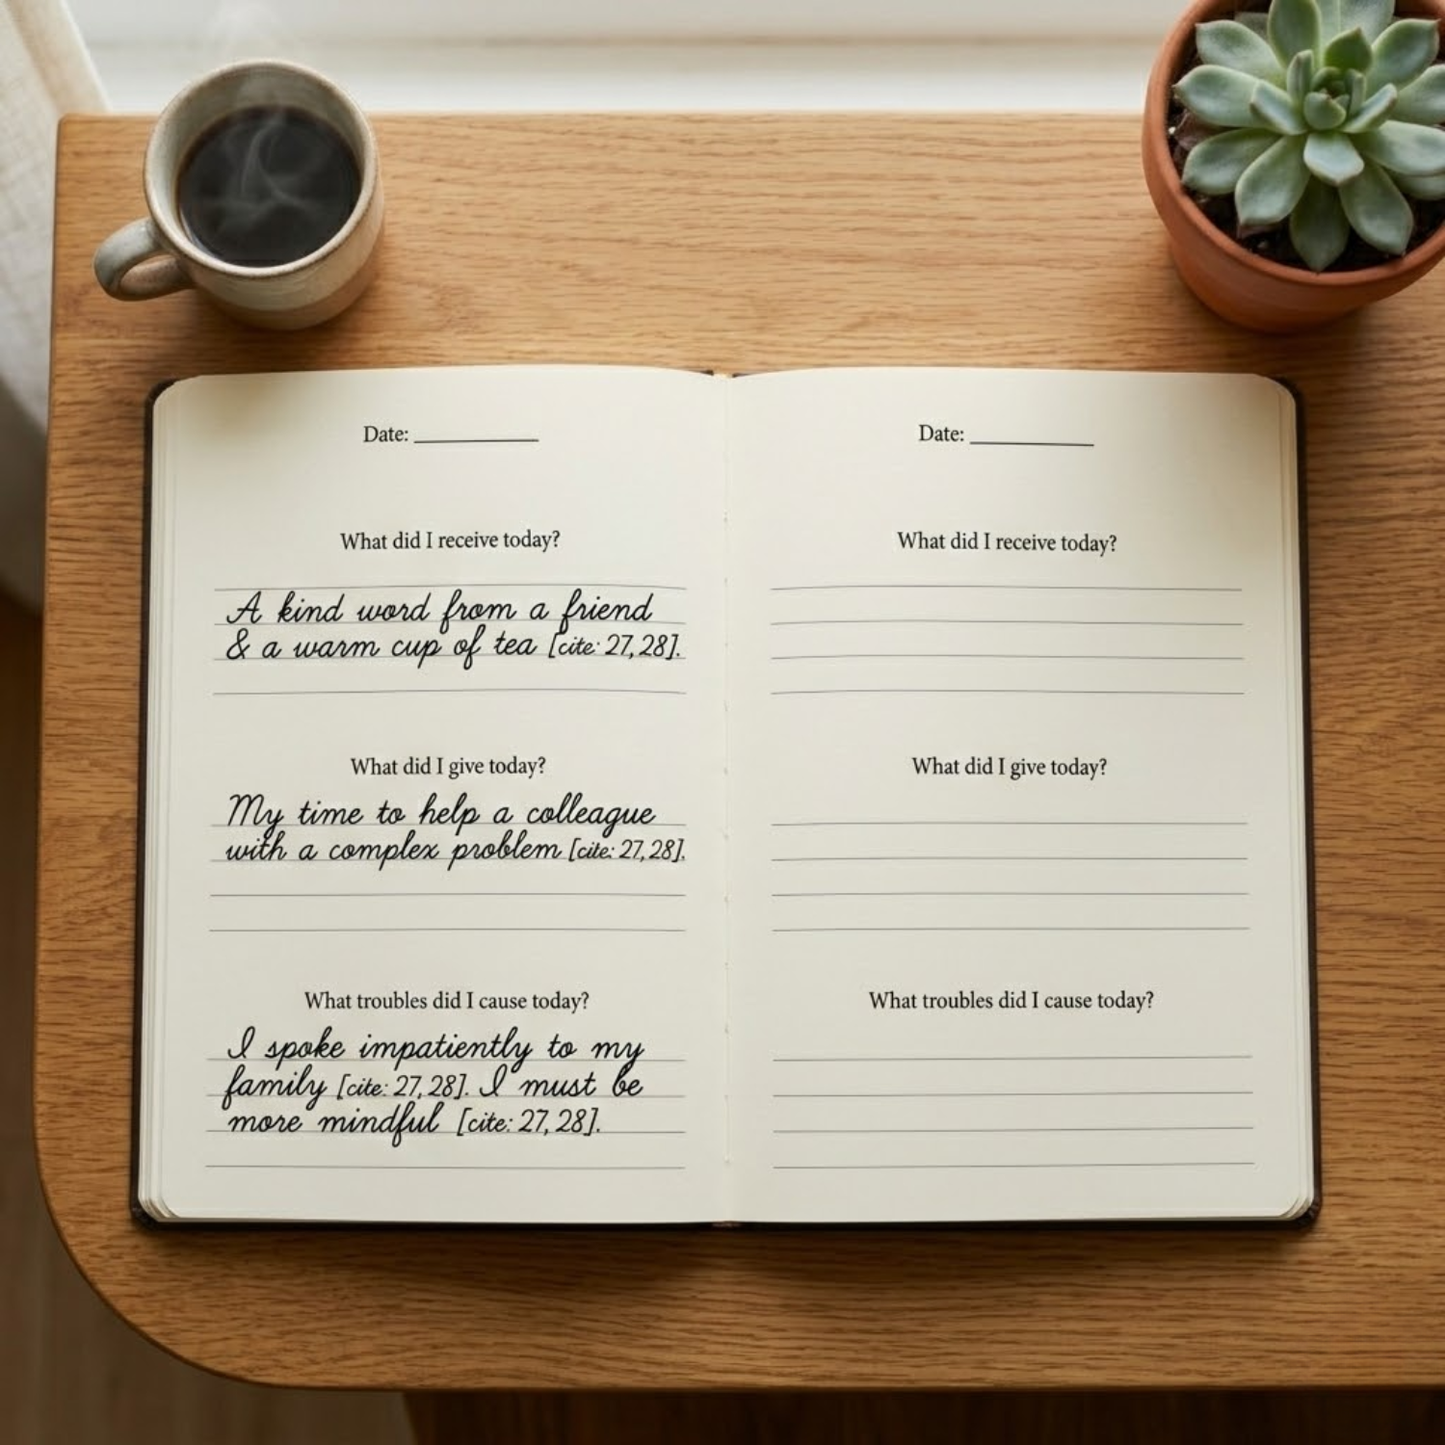 Date: __________
What did I receive today?
A kind word from a friend
& a warm cup of tea [cite: 27, 28].
What did I give today?
My time to help a colleague
with a complex problem [cite: 27, 28].
What troubles did I cause today?
I spoke impatiently to my
family [cite: 27, 28]. I must be
more mindful [cite: 27, 28].
Date: __________
What did I receive today?
What did I give today?
What troubles did I cause today?